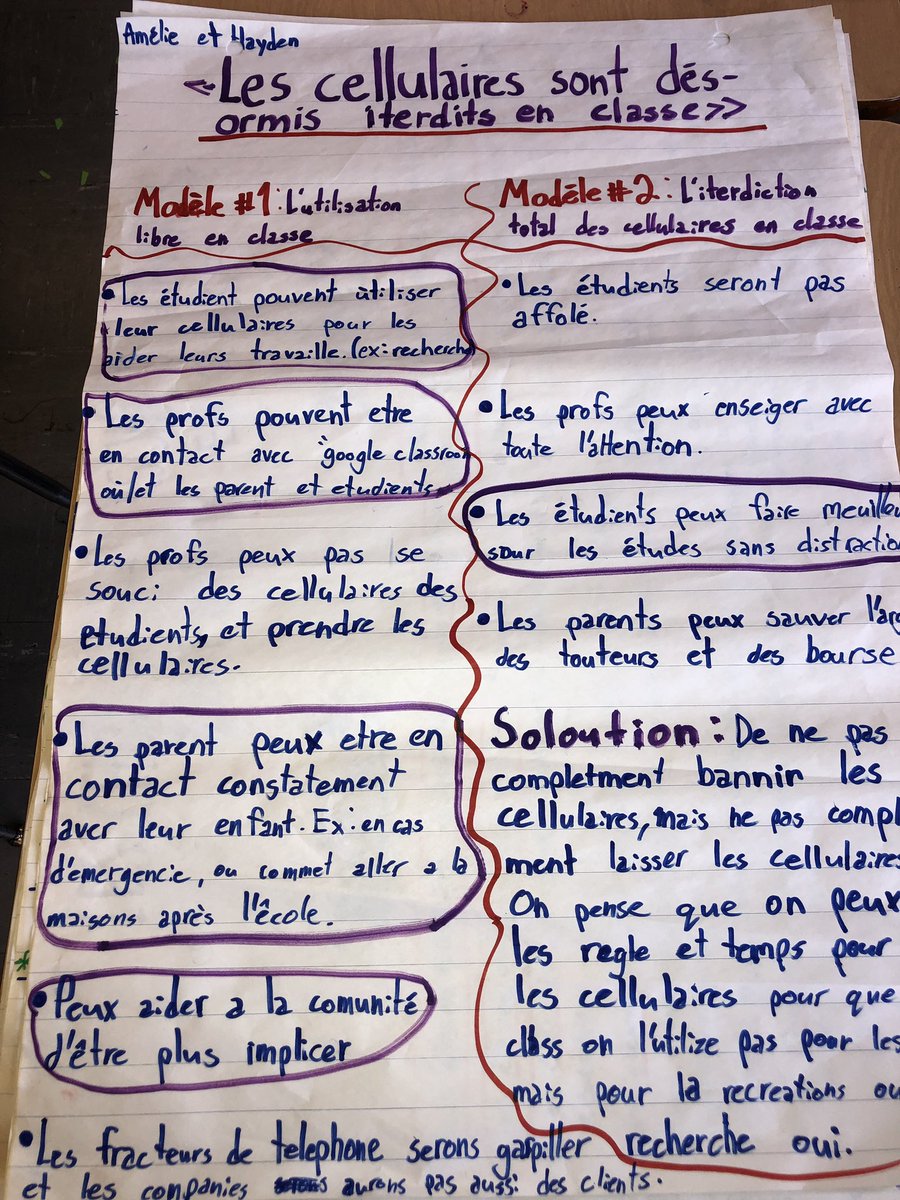 Amélie et Hayden
<<Les cellulaires sont dés-
ormis iterdits en classe>>
Modèle #1: L'utilisation
libre en classe
• Les étudient pouvent ùtiliser
leur cellulaires pour les
aider leurs travaille. (ex: recherche
• Les profs pouvent etre
en contact avec "google classroo
où/et les parent et etudients.
• Les profs peux pas se
souci des cellulaires des
etudients, et prendre les
cellulaires.
• Les parent peux etre en
contact constatement
avec leur enfant. Ex: en cas
d'émergencie, ou commet aller a la
maisons après l'école.
• Peux aider a la comunité
d'être plus implicer
• Les fracteurs de telephone serons gaspiller
et les companies aurons pas aussi des clients.
Modèle #2: L'iterdiction
total des cellulaires en classe
• Les étudients seront pas
affolé.
• Les profs peux enseiger avec
toute l'attention.
• Les étudients peux faire meuilleu
sour les études sans distraction
• Les parents peux sauver l'arg
des touteurs et des bourse
Soloution: De ne pas
completment bannir les
cellulaires, mais ne pas compl
ment laisser les cellulaires
On pense que on peux
les regle et temps pour
les cellulaires pour que
class on l'utilize pas pour les
mais pour la recreations ou
recherche oui.